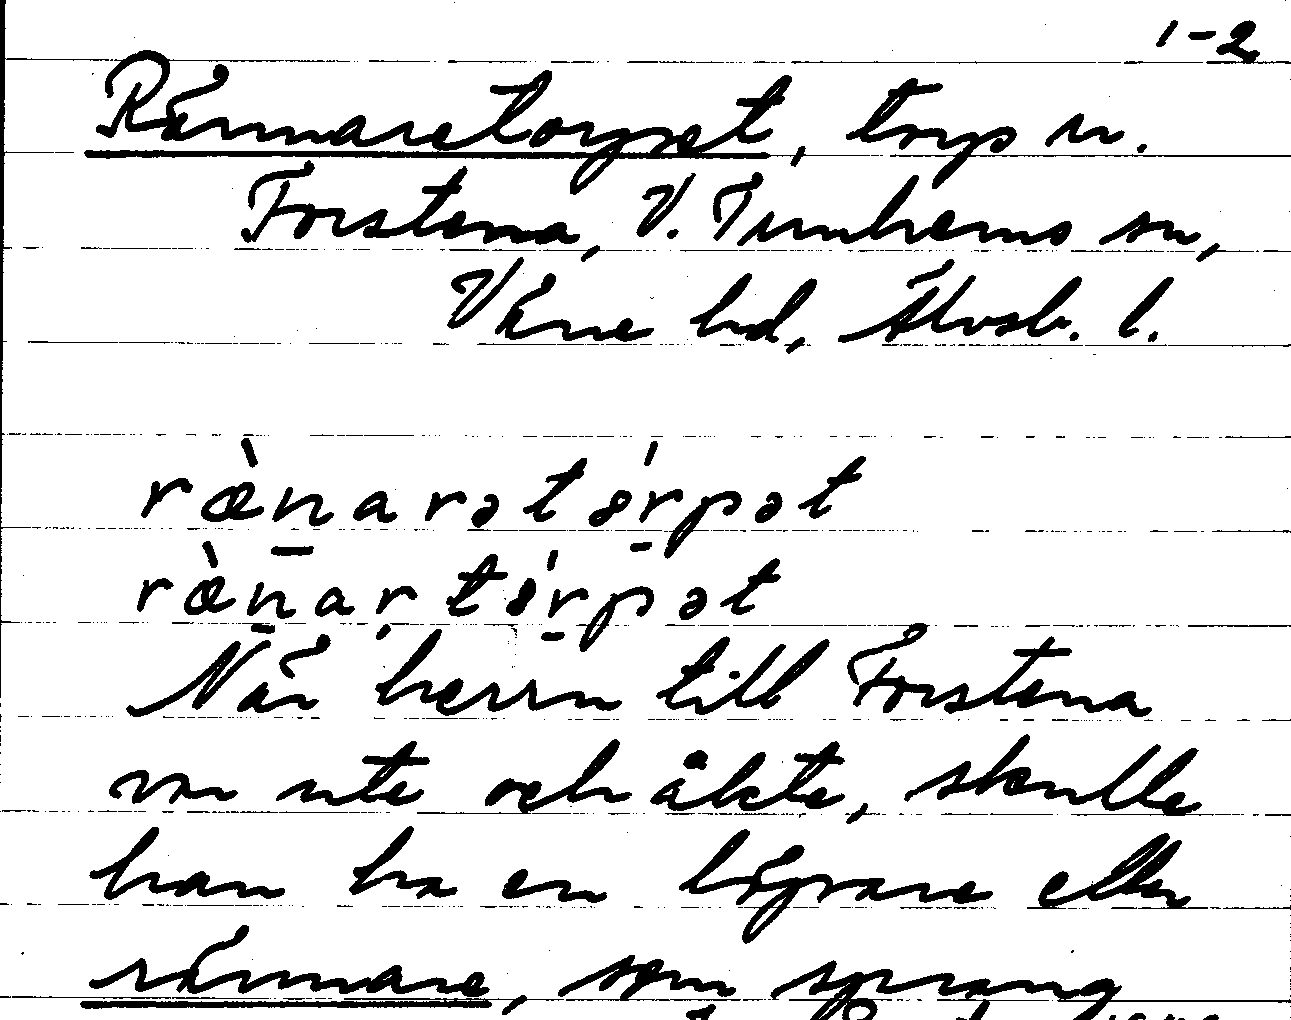 1-2
Rännaretorpet, torp u.
Forstena, V. Tunhems sn,
Väne hd, Älvsb. l.
ræ̀n̲arətór̲pət
ræ̀n̲ar̥tór̲pət
När herrn till Forstena
var ute och åkte, skulle
han ha en löpare eller
rännare, som sprang